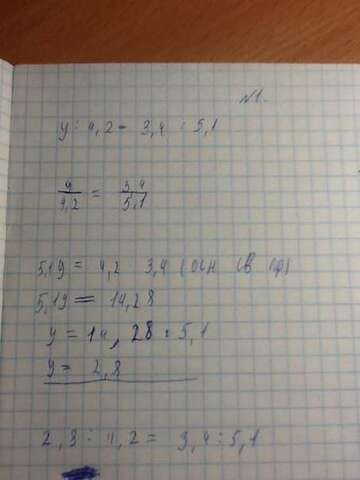 №1.
y : 4,2 = 3,4 : 5,1
y/4,2 = 3,4/5,1
5,1y = 4,2 3,4 (осн св пр)
5,1y = 14,28
y = 14,28 : 5,1
y = 2,8
2,8 : 4,2 = 3,4 : 5,1